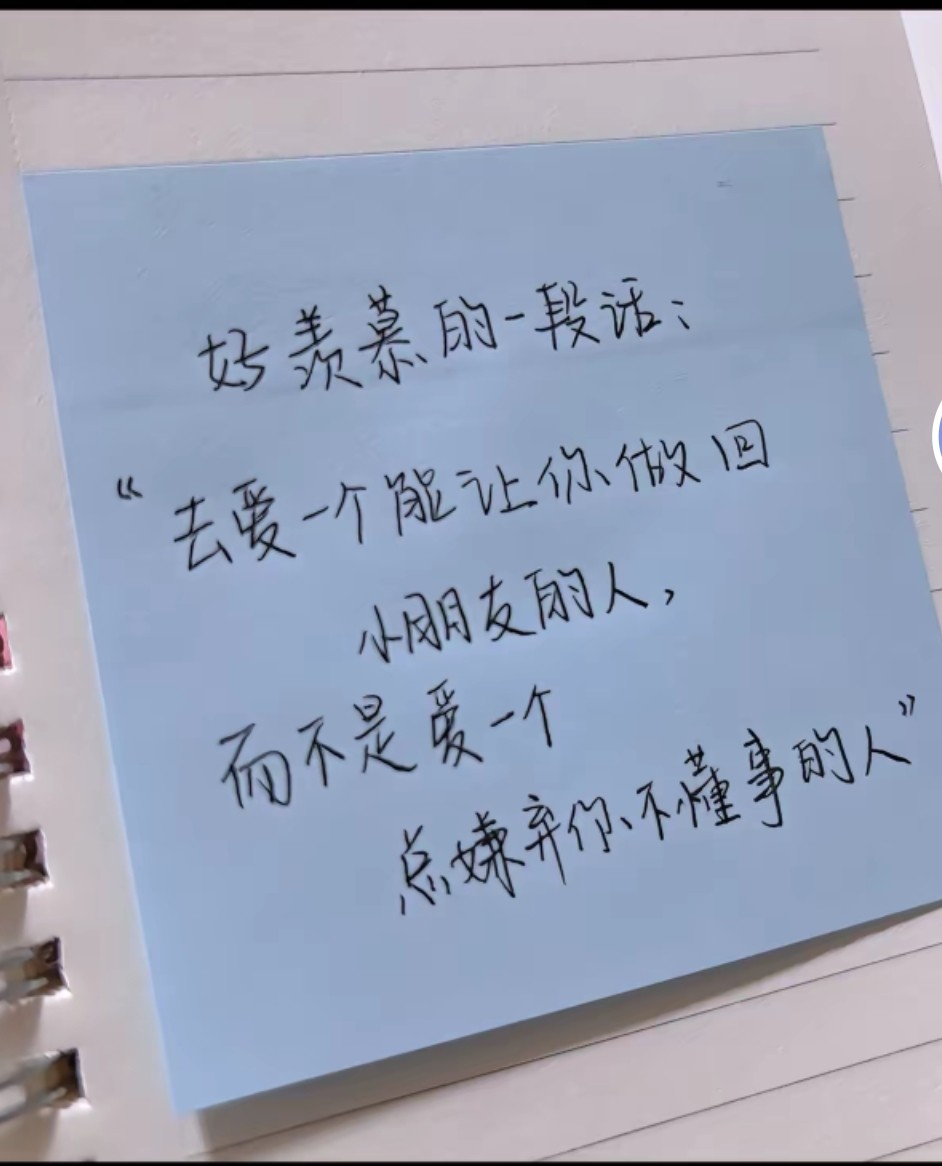 好羡慕的一段话：
“去爱一个能让你做回
小朋友的人，
而不是爱一个
总嫌弃你不懂事的人”